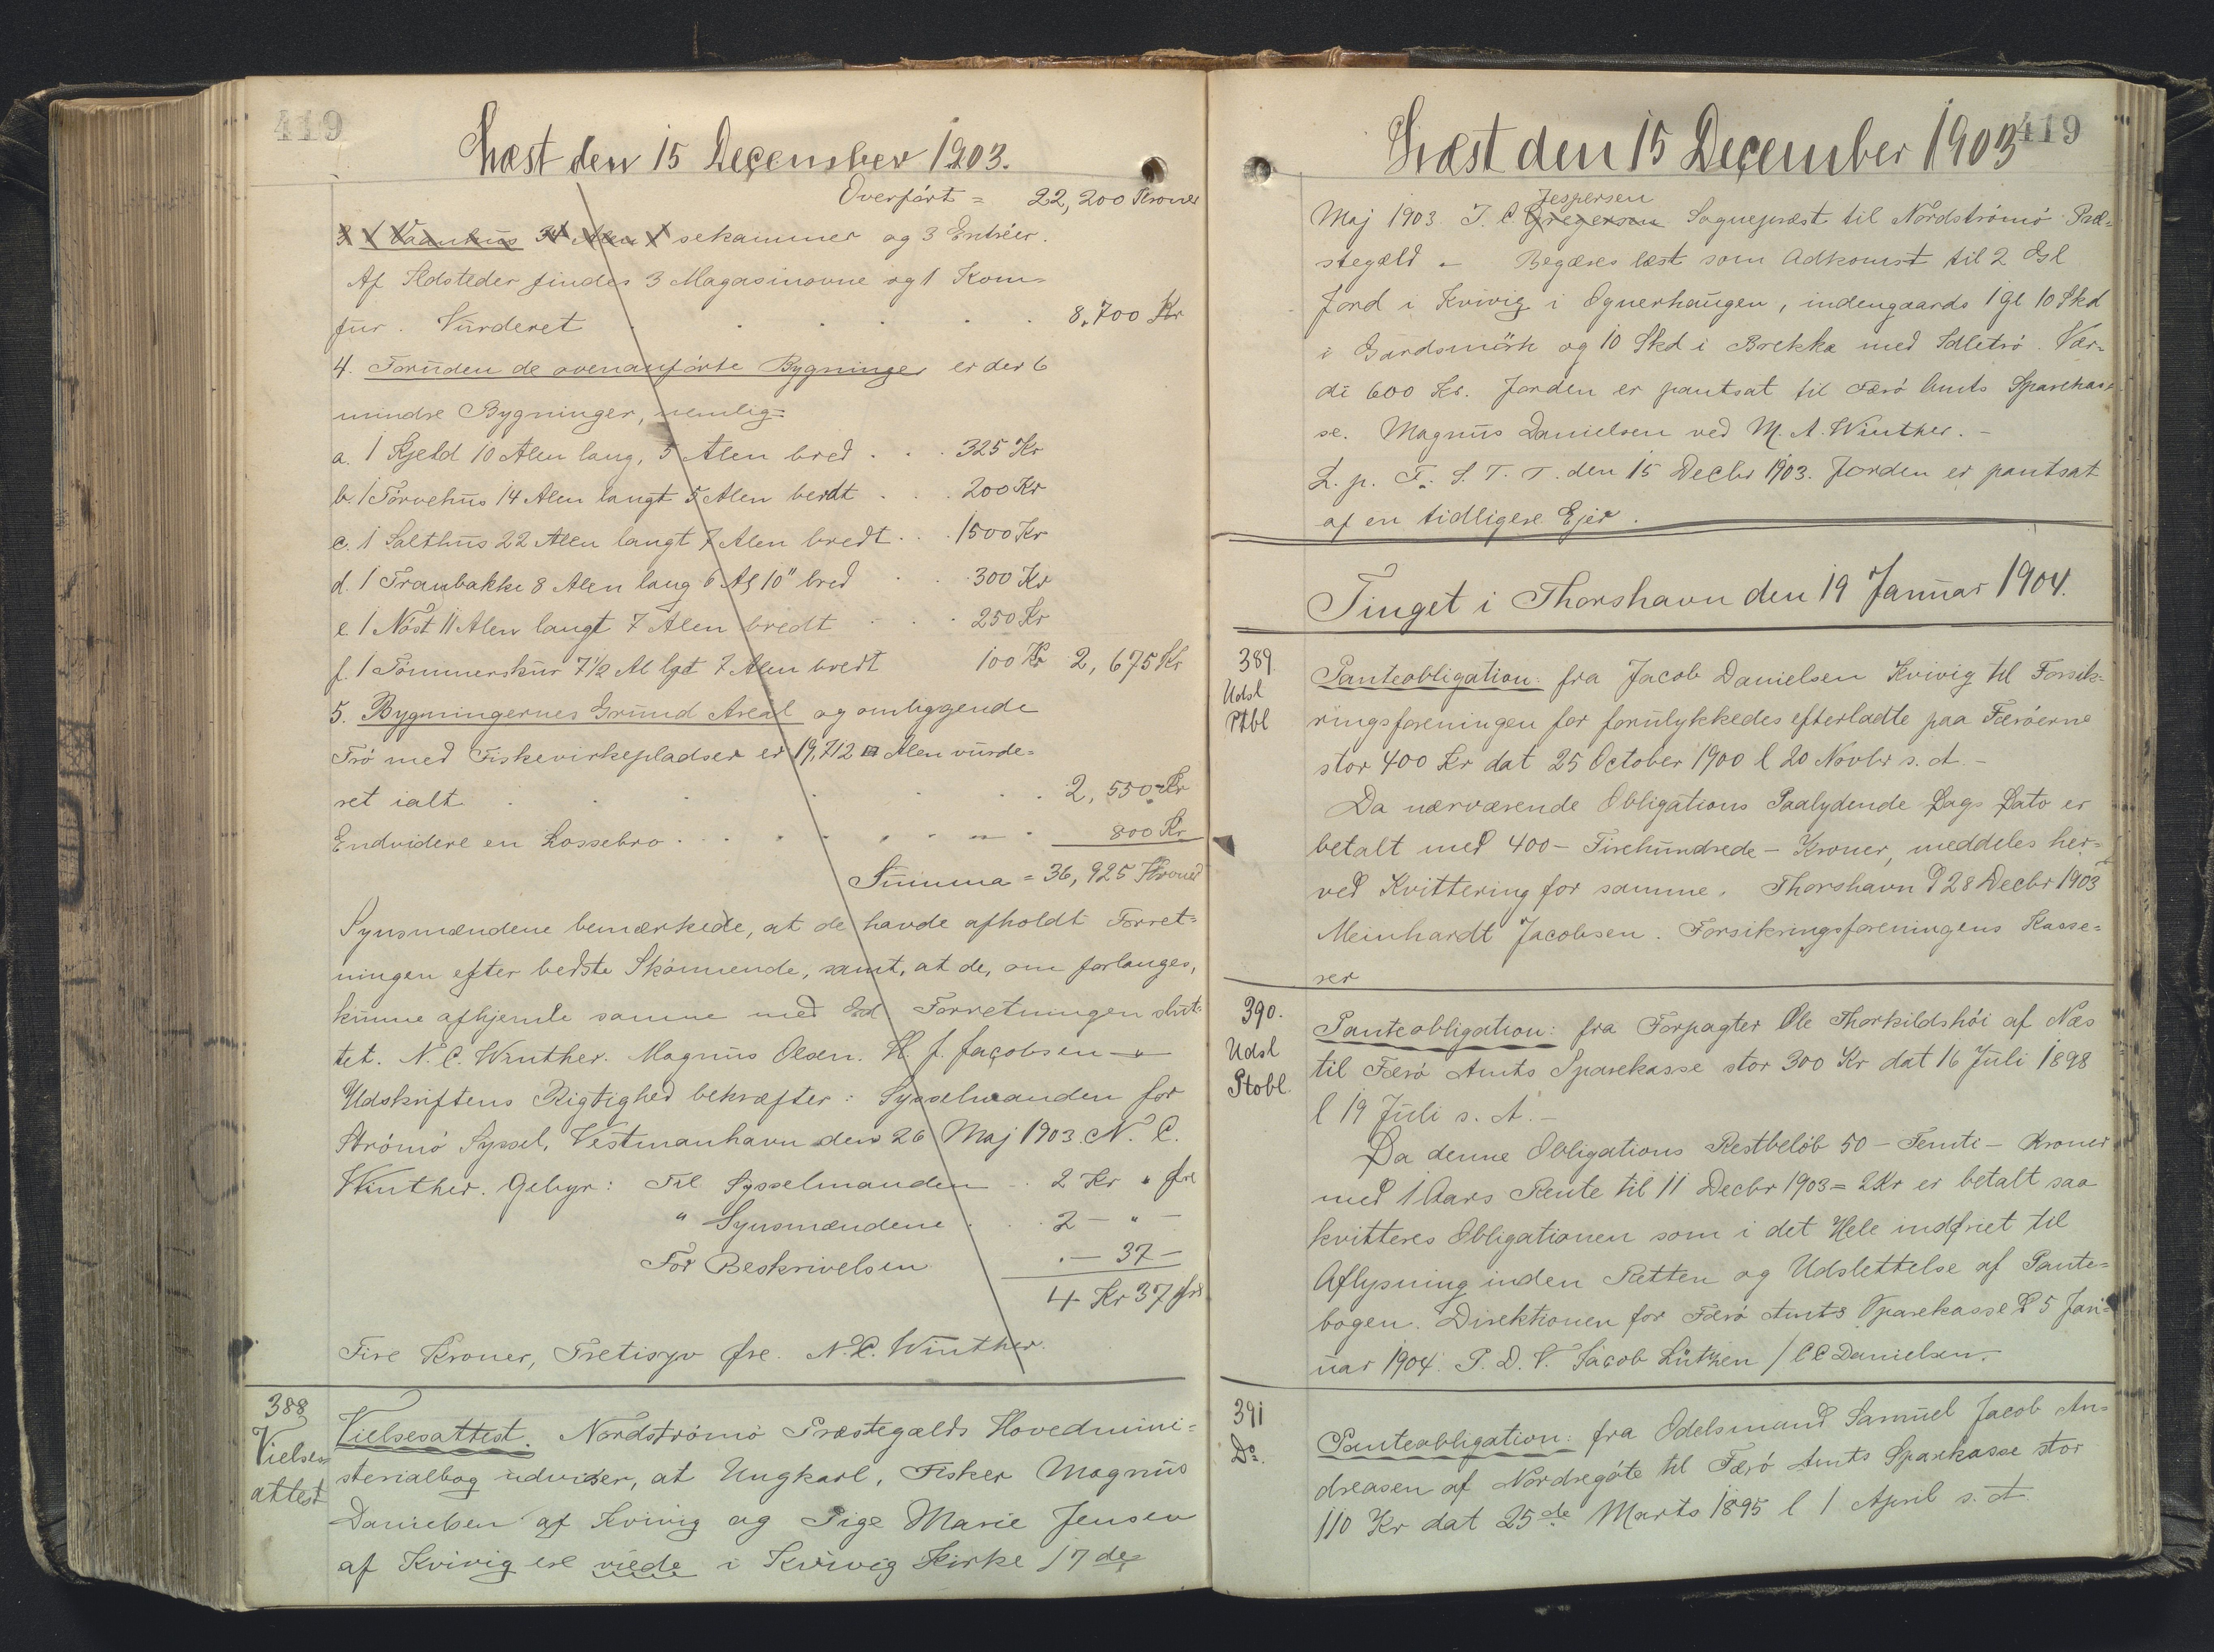 419
Læst den 15 December 1903.
Overført = 22,200 Kroner
sekammer og 3 Entréer.
Af Ildsteder findes 3 Magasinovne og 1 Kom-
fur. Vurderet . . . . . 8,700 Kr
4. Foruden de ovenanførte Bygninger er der 6
mindre Bygninger, nemlig:
a. 1 Kjeld 10 Alen lang, 5 Alen bred . . . 325 Kr
b. 1 Tørvehus 14 Alen langt 5 Alen bredt . . . 200 Kr
c. 1 Salthus 22 Alen langt 7 Alen bredt . . . 1500 Kr
d. 1 Tranbakke 8 Alen lang 6 Al 10" bred . . 300 Kr
e. 1 Nøst 11 Alen langt 7 Alen bredt . . . 250 Kr
f. 1 Tømmerskur 7½ Al lgt 7 Alen bredt 100 Kr 2,675 Kr
5. Bygningernes Grund Areal og omliggende
Trø med Fiskevirkepladser er 19,712 □ Alen vurde-
ret ialt . . . . . . 2,550 Kr
Endvidere en Lossebro . . . . . . 800 Kr
Summa = 36,925 Kroner
Synsmændene bemærkede, at de havde afholdt Forret-
ningen efter bedste Skønnende, samt, at de, om forlanges,
kunne afhjemle samme med Ed. Forretningen slut-
tet. N. C. Winther. Magnus Olsen. H. J. Jacobsen -
Udskriftens Rigtighed bekræfter: Sysselmanden for
Strømø Syssel, Vestmanhavn den 26 Maj 1903. N. C.
Winther. Gebyr: Til Sysselmanden . . 2 Kr " Øre
" Synsmændene . . . 2 — " —
For Beskrivelsen . — 37 —
4 Kr 37 Øre
Fire Kroner, Tretisyv Øre. N. C. Winther.
388
Vielses-
attest
Vielsesattest. Nordstrømø Præstegælds Hovedmini-
sterialbog udviser, at Ungkarl, Fisker Magnus
Danielsen af Kvivig og Pige Marie Jensen
af Kvivig ere viede i Kvivig Kirke 17 de
419
Læst den 15 December 1903
Jespersen
Maj 1903. J. C. Gregersen Sognepræst til Nordstrømø Præ-
stegæld - Begæres læst som Adkomst til 2 Gl
Jord i Kvivig i Ognerhaugen, indengaards 1 Gl 10 Skd
i Gardsmörk og 10 Skd i Brekka med Idletrø. Vær-
di 600 Kr. Jorden er pantsat til Færø Amts Sparekas-
se. Magnus Danielsen ved M. A. Winther. -
L. p. F. S. T. T. den 15 Decbr 1903. Jorden er pantsat
af en tidligere Ejer.
Tinget i Thorshavn den 19 Januar 1904.
389
Udsl
Ptbl
Panteobligation: fra Jacob Danielsen Kvivig til Forsik-
ringsforeningen for forulykkedes efterladte paa Færøerne
stor 400 Kr dat 25 October 1900 l 20 Novbr s. A. -
Da nærværende Obligations Paalydende Dags Dato er
betalt med 400 - Firehundrede - Kroner, meddeles her-
ved Kvittering for samme. Thorshavn d 28 Decbr 1903
Meinhardt Jacobsen. Forsikringsforeningens Kasse-
rer
390.
Udsl
Ptobl.
Panteobligation: fra Forpagter Ole Thorkildshöi af Næs
til Færø Amts Sparekasse stor 300 Kr dat 16 Juli 1898
l 19 Juli s. A. -
Da denne Obligations Restbeløb 50 - Femti - Kroner
med 1 Aars Rente til 11 Decbr 1903 = 2 Kr er betalt saa
kvitteres Obligationen som i det Hele indfriet til
Aflysning inden Retten og Udslettelse af Pante-
bogen. Direktionen for Færø Amts Sparekasse d 5 Jan-
uar 1904. P. D. V. Jacob Lützen / C C Danielsen.
391
Do.
Panteobligation: fra Odelsmand Samuel Jacob An-
dreasen af Nordregöte til Færø Amts Sparekasse stor
110 Kr dat 25de Marts 1895 l 1 April s. A